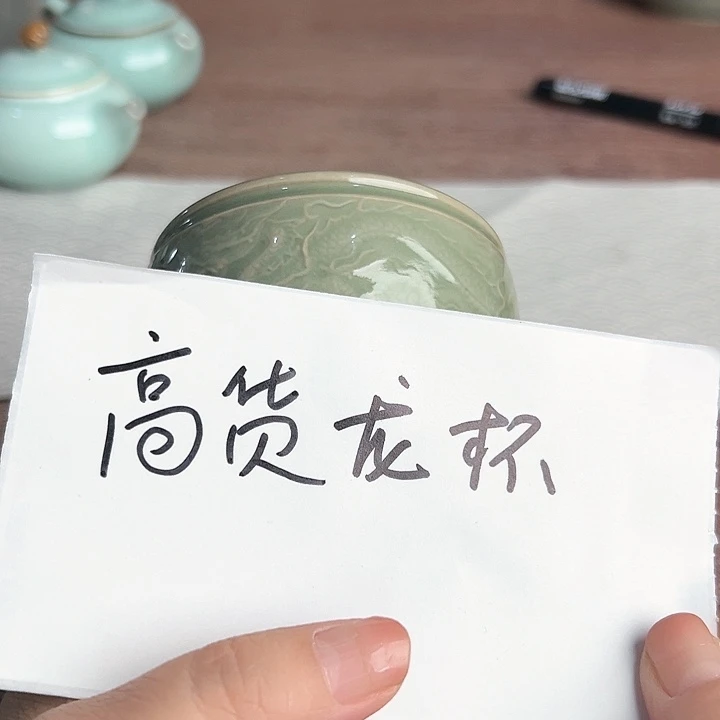 高货龙杯